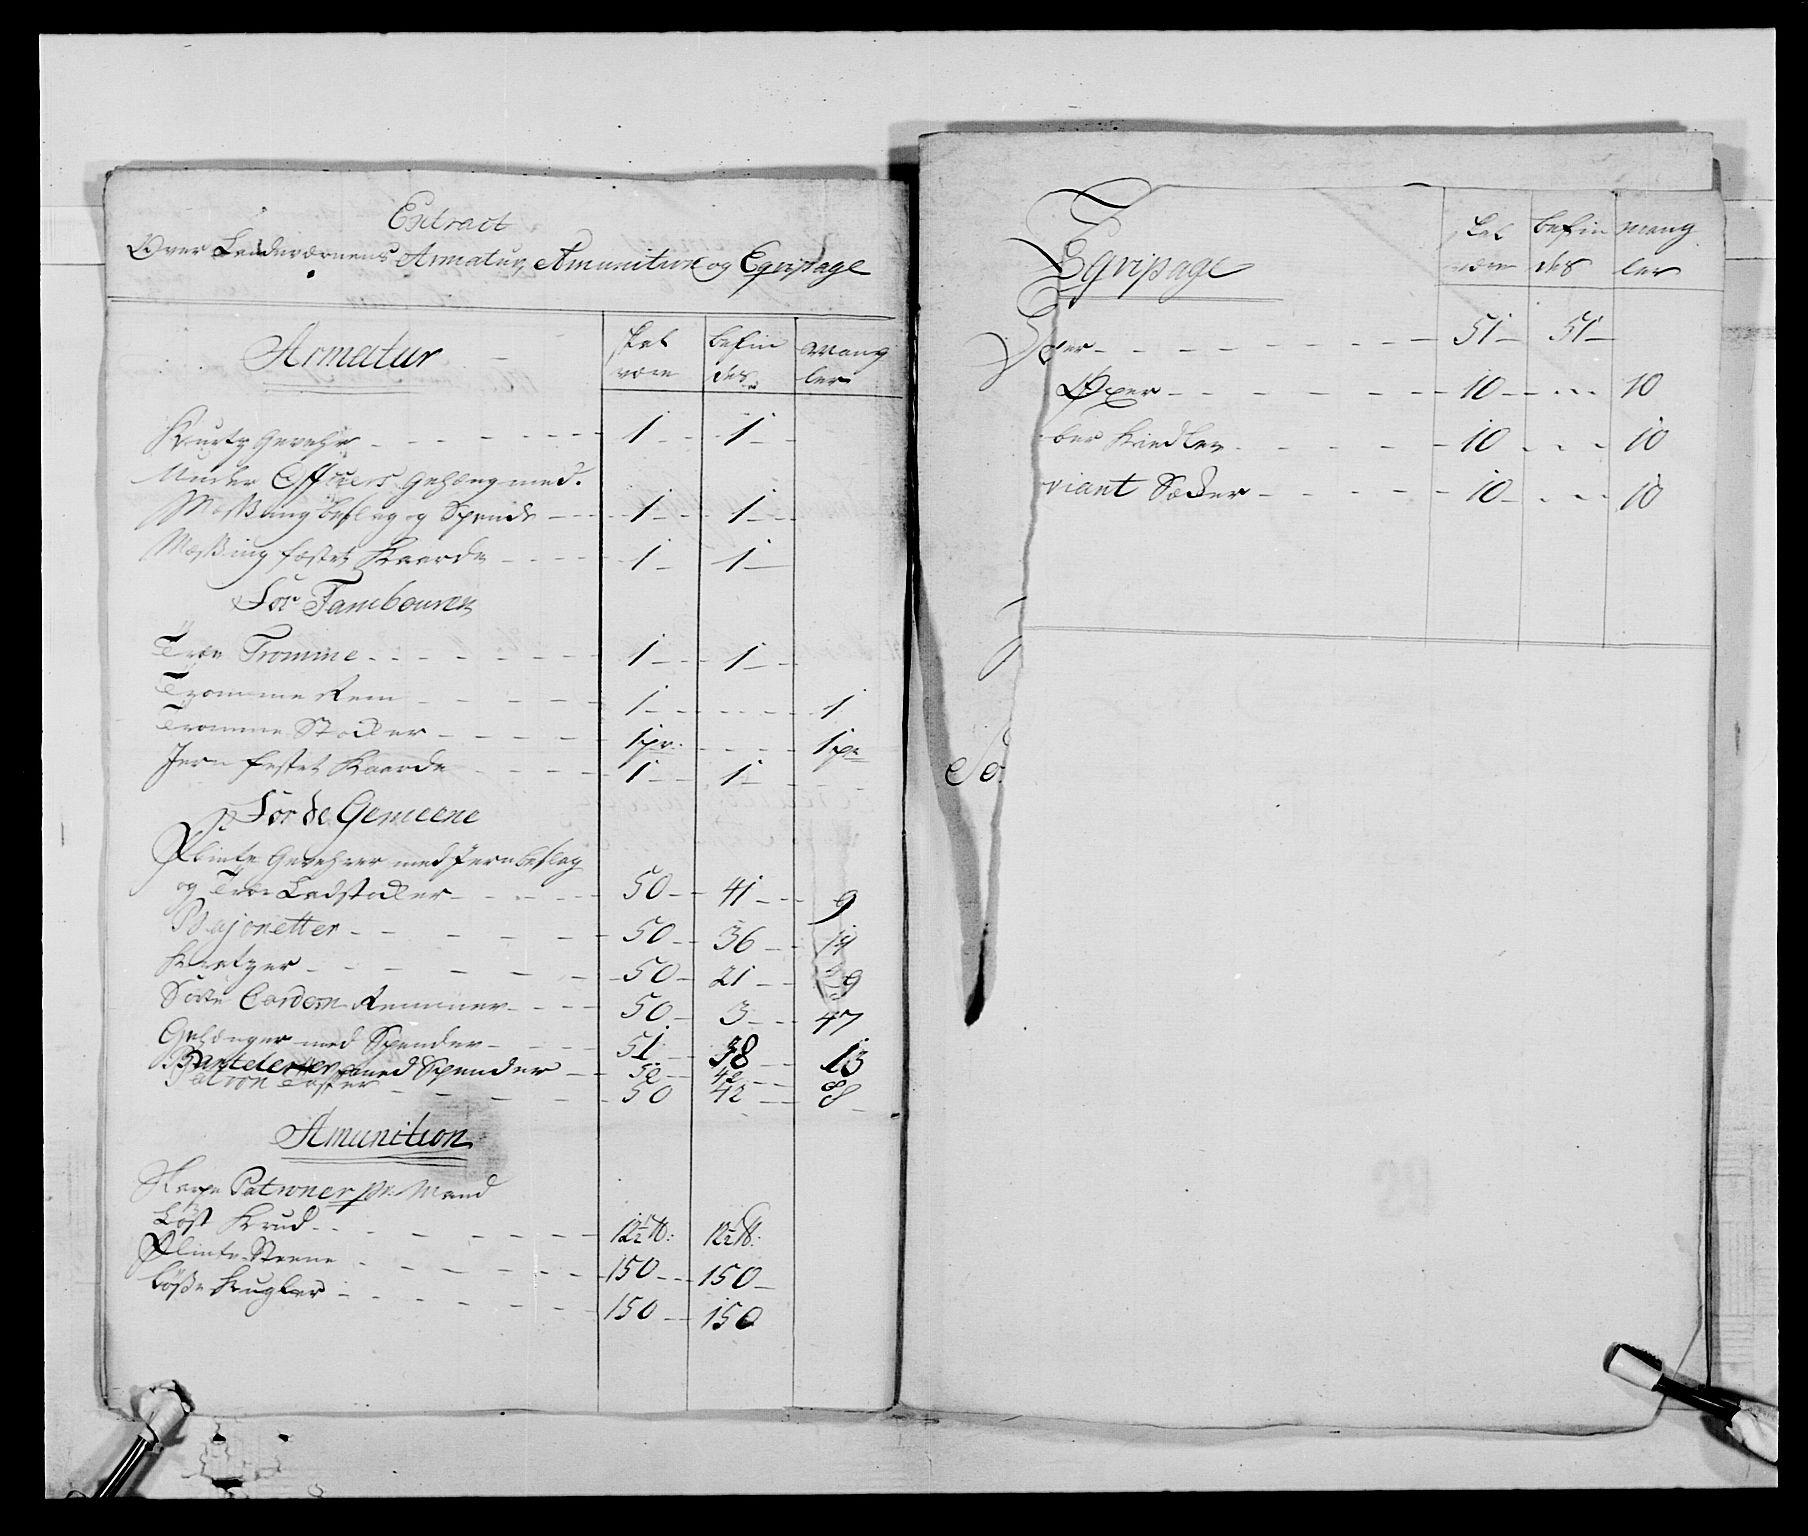 Extract
Over Landeværnens Armatur, Amunition og Eqvipage
Armatur skal være befindes mangler
Kurtz Gevehr 1 1
Under Officers Gehæng med
Messing beslag og Spende 1 1
Messing fæstet Kaarde 1 1
For Tambouren
Træe Tromme 1 1
Tromme Rem 1 1
Tromme Stocker 1 pr. 1 pr
Jern festet Kaarde 1 1
For de Gemeene
Flinte Gevehrer med Jernbeslag
og Træe Ladstocker 50 41 9
Bajonetter 50 36 14
Kratzer 50 21 29
Sorte Cardon Remmer 50 3 47
Gehænger med Spender 51 38 13
Bantelerer med Spender 50 42 8
Patron Tasker 50 42 8
Amunition
Skarpe Patroner pr. Mand
Løst Krud 12½ ℔: 12½ ℔:
Flinte Steene 150 150
Løse Kugler 150 150
Eqvipage skal være befindes mangler
51 51
Øxer 10 10
ber Kiedler 10 10
viant Sæcker 10 10
So